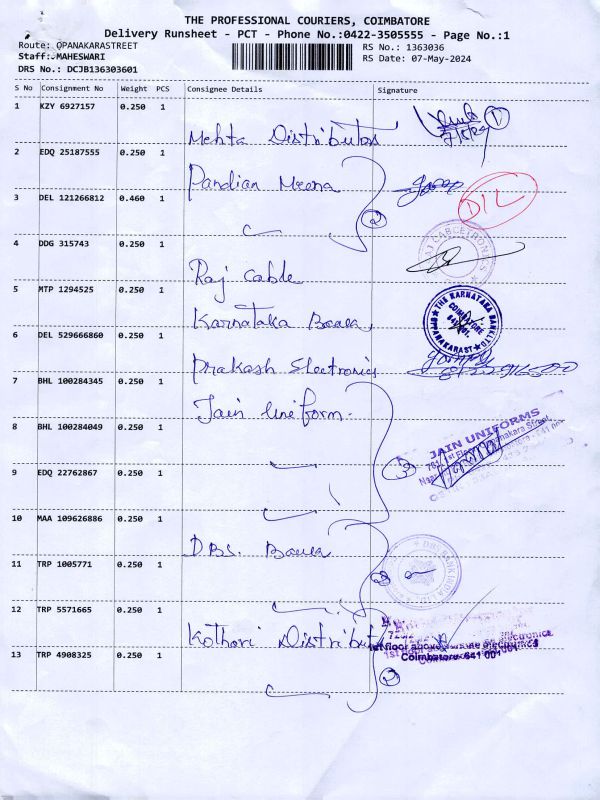 THE PROFESSIONAL COURIERS, COIMBATORE
Delivery Runsheet - PCT - Phone No.:0422-3505555 - Page No.:1
Route: OPANAKARASTREET
RS No.: 1363036
Staff: MAHESWARI
RS Date: 07-May-2024
DRS No.: DCJB136303601
S No Consignment No Weight PCS Consignee Details Signature
1 KZY 6927157 0.250 1
Mehta Distributors
2 EDQ 25187555 0.250 1
Pandian Meena
3 DEL 121266812 0.460 1
2
DIL
4 DDG 315743 0.250 1
Raj Cable
5 MTP 1294525 0.250 1
Karnataka Bank
THE KARNATAKA BANK LTD
COIMBATORE
641 001.
OPPANAKARAST
6 DEL 529666860 0.250 1
Prakash Electronics
7 BHL 100284345 0.250 1
Jain Uniform.
JAIN UNIFORMS
8 BHL 100284049 0.250 1
3
9 EDQ 22762867 0.250 1
10 MAA 109626886 0.250 1
DBS. Bank
11 TRP 1005771 0.250 1
2
12 TRP 5571665 0.250 1
Kothari Distributors
1st floor above
electronics
Coimbatore-641 001
13 TRP 4908325 0.250 1
2